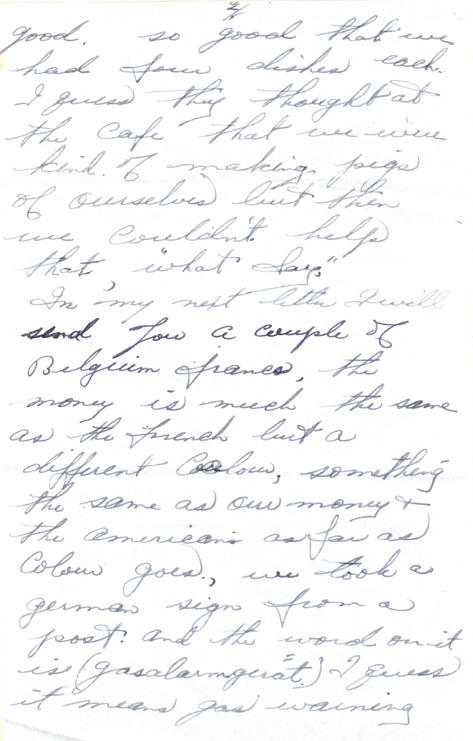 2/
good. so good that we
had four dishes each.
I guess they thought at
the cafe that we were
kind of making pigs
of ourselves but then
we couldn't help
that, "what say."
In my next letter I will
send you a couple of
Belgium francs, the
money is much the same
as the french but a
different Colour, something
the same as our money &
the americans as far as
Colour goes., we took a
german sign from a
post. and the word on it
is (gasalarmgerät.) I guess
it means gas warning